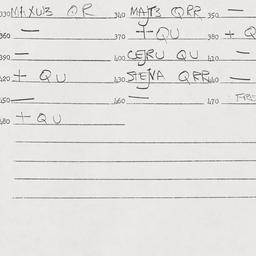 330 MAXUB QR 340 MATTS QRR 350 —
360 — 370 + QU 380 + Q
390 — 400 CEJRU QU 410 —
420 + QU 430 STEJNA QRR 440 —
450 — 460 — 470
480 + QU